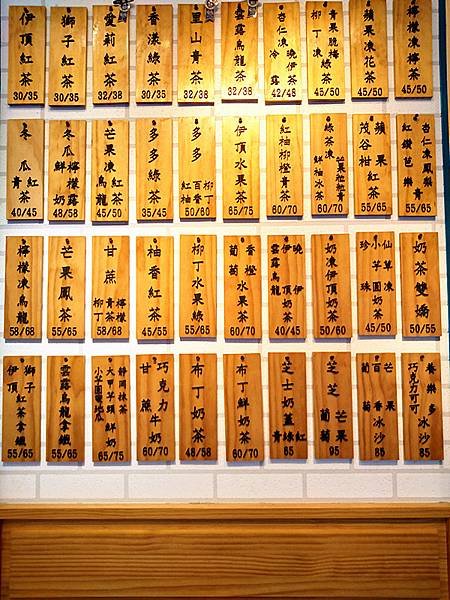 伊頂紅茶
30/35
獅子紅茶
30/35
愛莉紅茶
32/38
香漾綠茶
30/35
里山青茶
32/38
雲霧烏龍茶
32/38
杏仁凍
冷露
曉伊茶
42/48
柳丁凍
青果脆梅綠茶
45/50
蘋果凍花茶
45/50
檸檬凍檸茶
45/50
冬瓜
青紅茶
40/45
冬瓜檸檬露
鮮奶
48/58
芒果凍紅茶
烏龍
45/50
多多綠茶
35/45
多多
柳丁
百香
紅柚
50/60
伊頂水果茶
65/75
紅柚柳橙青茶
60/70
綠茶凍
芒果粒粒青
鮮柚冰茶
60/70
蘋果紅茶
茂谷柑
55/65
杏仁凍鳳梨青
紅鑽芭樂
55/65
檸檬凍烏龍
58/68
芒果鳳茶
55/65
甘蔗
檸檬
青茶
柳丁
58/68
柚香紅茶
45/55
柳丁水果綠
55/65
香橙水果茶
葡萄
60/70
曉伊
伊頂奶茶
雲霧烏龍
40/45
奶凍伊頂奶茶
50/60
仙草凍
小芋圓奶茶
珍珠
45/50
奶茶雙嬌
50/55
獅子
伊頂紅茶拿鐵
55/65
雲霧烏龍茶拿鐵
55/65
靜岡抹茶
大甲芋頭鮮奶
小芋圓地瓜
65/75
巧克力牛奶
甘蔗
60/70
布丁奶茶
48/58
布丁鮮奶茶
60/70
芝士奶蓋
青綠紅
65
芝芝芒果
葡萄
95
芒果
百香冰沙
葡萄
85
養樂多
巧克力可可冰沙
85